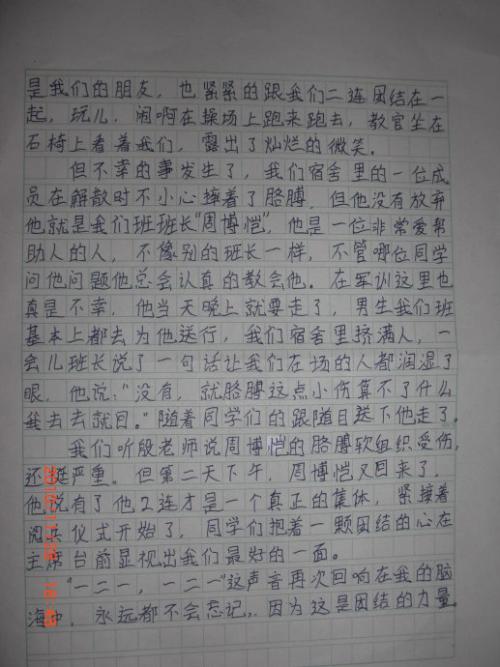 是我们的朋友，也紧紧的跟我们二连团结在一
起，玩儿，闹啊在操场上跑来跑去，教官坐在
石椅上看着我们，露出了灿烂的微笑。
但不幸的事发生了，我们宿舍里的一位成
员在解散时不小心摔着了胳膊，但他没有放弃
他就是我们班班长"周博恺"，他是一位非常爱帮
助人的人，不像别的班长一样，不管哪位同学
问他问题他总会认真的教会他。在军训这里也
真是不幸，他当天晚上就要走了，男生我们班
基本上都去为他送行，我们宿舍里挤满人，一
会儿班长说了一句话让我们在场的人都润湿了
眼，他说："没有，就胳膊这点小伤算不了什么
我去去就回。"随着同学们的跟随目送下他走了。
我们听殷老师说周博恺的胳膊软组织受伤，
还挺严重。但第二天下午，周博恺又回来了，
他说有了他2连才是一个真正的集体，紧接着
阅兵仪式开始了，同学们抱着一颗团结的心在
主席台前显视出我们最好的一面。
"一二一，一二一"这声音再次回响在我的脑
海中，永远都不会忘记，因为这是团结的力量。